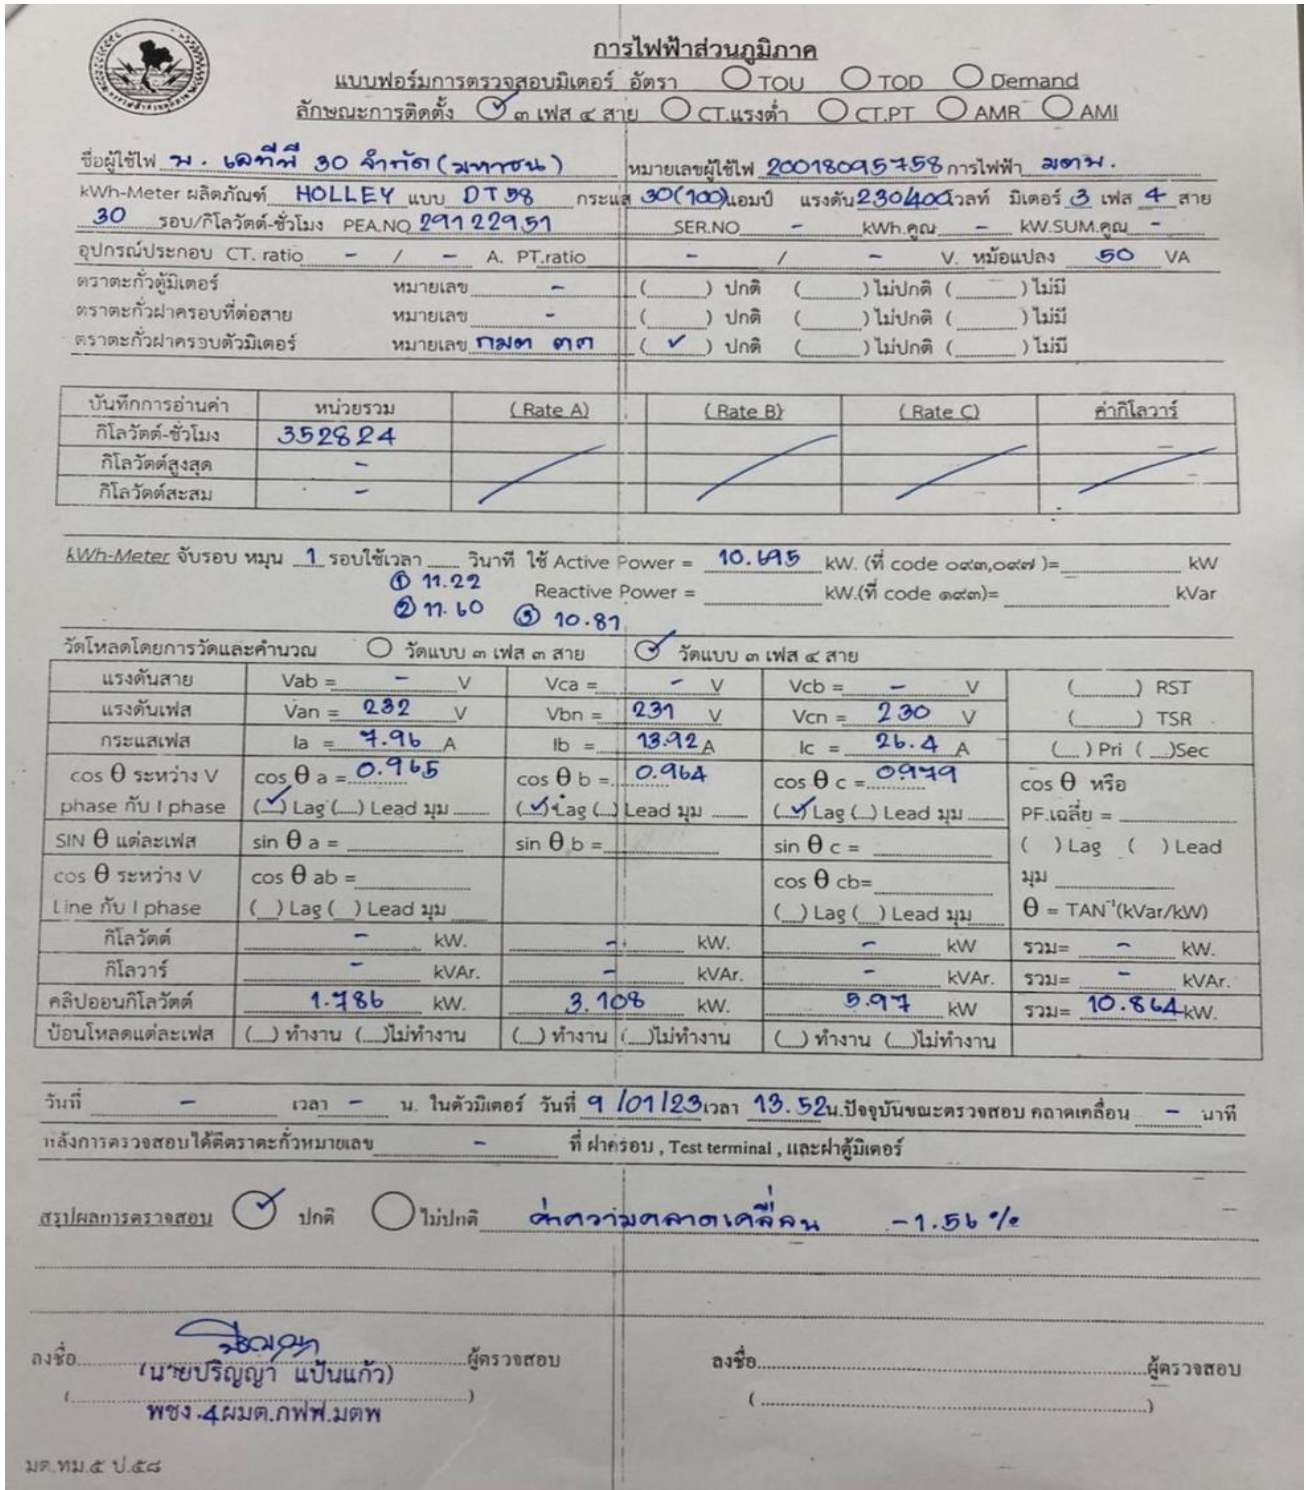 การไฟฟ้าส่วนภูมิภาค
แบบฟอร์มการตรวจสอบมิเตอร์ อัตรา TOU TOD Demand
ลักษณะการติดตั้ง ✓ ๓ เฟส ๔ สาย CT.แรงต่ำ CT.PT AMR AMI
ชื่อผู้ใช้ไฟ 30 จำกัด (มหาชน) หมายเลขผู้ใช้ไฟ 20018095758 การไฟฟ้า มตพ.
kWh-Meter ผลิตภัณฑ์ HOLLEY แบบ DT58 กระแส 30(100) แอมป์ แรงดัน 230/400 โวลท์ มิเตอร์ 3 เฟส 4 สาย
30 รอบ/กิโลวัตต์-ชั่วโมง PEA.NO 29122951 SER.NO - kWh.คูณ - kW.SUM.คูณ -
อุปกรณ์ประกอบ CT. ratio - / - A. PT.ratio - / - V. หม้อแปลง 50 VA
ตราตะกั่วตู้มิเตอร์ หมายเลข - ( ) ปกติ ( ) ไม่ปกติ ( ) ไม่มี
ตราตะกั่วฝาครอบที่ต่อสาย หมายเลข - ( ) ปกติ ( ) ไม่ปกติ ( ) ไม่มี
ตราตะกั่วฝาครอบตัวมิเตอร์ หมายเลข กมต ๓๓ ( ✓ ) ปกติ ( ) ไม่ปกติ ( ) ไม่มี
บันทึกการอ่านค่า หน่วยรวม ( Rate A) ( Rate B) ( Rate C) ค่ากิโลวาร์
กิโลวัตต์-ชั่วโมง 352824
กิโลวัตต์สูงสุด -
กิโลวัตต์สะสม -
kWh-Meter จับรอบ หมุน 1 รอบใช้เวลา วินาที ใช้ Active Power = 10.695 kW. (ที่ code ๐๔๓,๐๔๗ )= kW
① 11.22 Reactive Power = kW.(ที่ code ๑๔๓)= kVar
② 11.60 ③ 10.87
วัดโหลดโดยการวัดและคำนวณ วัดแบบ ๓ เฟส ๓ สาย ✓ วัดแบบ ๓ เฟส ๔ สาย
แรงดันสาย Vab = - V Vca = - V Vcb = - V ( ) RST
แรงดันเฟส Van = 232 V Vbn = 231 V Vcn = 230 V ( ) TSR
กระแสเฟส Ia = 7.96 A Ib = 13.92 A Ic = 26.4 A ( ) Pri ( )Sec
cos θ ระหว่าง V cos θ a = 0.965 cos θ b = 0.964 cos θ c = 0.979 cos θ หรือ
phase กับ I phase (✓) Lag ( ) Lead มุม (✓) Lag ( ) Lead มุม (✓) Lag ( ) Lead มุม PF.เฉลี่ย =
SIN θ แต่ละเฟส sin θ a = sin θ b = sin θ c = ( ) Lag ( ) Lead
cos θ ระหว่าง V cos θ ab = cos θ cb= มุม
Line กับ I phase ( ) Lag ( ) Lead มุม ( ) Lag ( ) Lead มุม θ = TAN⁻¹(kVar/kW)
กิโลวัตต์ - kW. - kW. - kW รวม= - kW.
กิโลวาร์ - kVAr. - kVAr. - kVAr. รวม= - kVAr.
คลิปออนกิโลวัตต์ 1.786 kW. 3.108 kW. 5.97 kW รวม= 10.864 kW.
ป้อนโหลดแต่ละเฟส ( ) ทำงาน ( )ไม่ทำงาน ( ) ทำงาน ( )ไม่ทำงาน ( ) ทำงาน ( )ไม่ทำงาน
วันที่ - เวลา - น. ในตัวมิเตอร์ วันที่ 9 /01/23 เวลา 13.52 น.ปัจจุบันขณะตรวจสอบ คลาดเคลื่อน - นาที
หลังการตรวจสอบได้ตีตราตะกั่วหมายเลข - ที่ ฝาครอบ , Test terminal , และฝาตู้มิเตอร์
สรุปผลการตรวจสอบ ✓ ปกติ ไม่ปกติ ค่าความคลาดเคลื่อน -1.56 %
ลงชื่อ ผู้ตรวจสอบ ลงชื่อ ผู้ตรวจสอบ
(นายปริญญา แป้นแก้ว) ( )
พชง.4ผมต.กฟฟ.มตพ
มต.ทม.๕ ป.๕๘